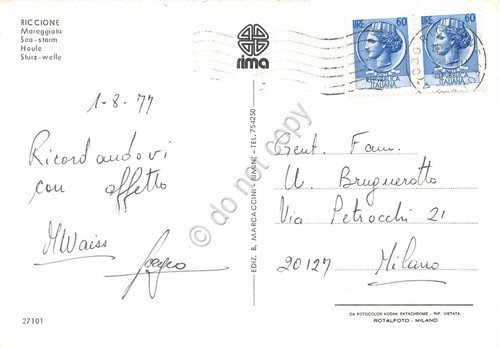 RICCIONE
Mareggiata
Sea-storm
Houle
Sturz-welle
rima
LIRE 60
REPUBBLICA
ITALIANA
LIRE 60
REPUBBLICA
ITALIANA
1-8-77
Ricordandovi
con affetto
MWaiss
EDIZ. B. MARCACCINI - RIMINI - TEL. 754250
Gent. Fam.
U. Brugnerotto
Via Petrocchi 21
20127 Milano
27101
DA FOTOCOLOR KODAK EKTACHROME - RIP. VIETATA
ROTALFOTO - MILANO
do not copy